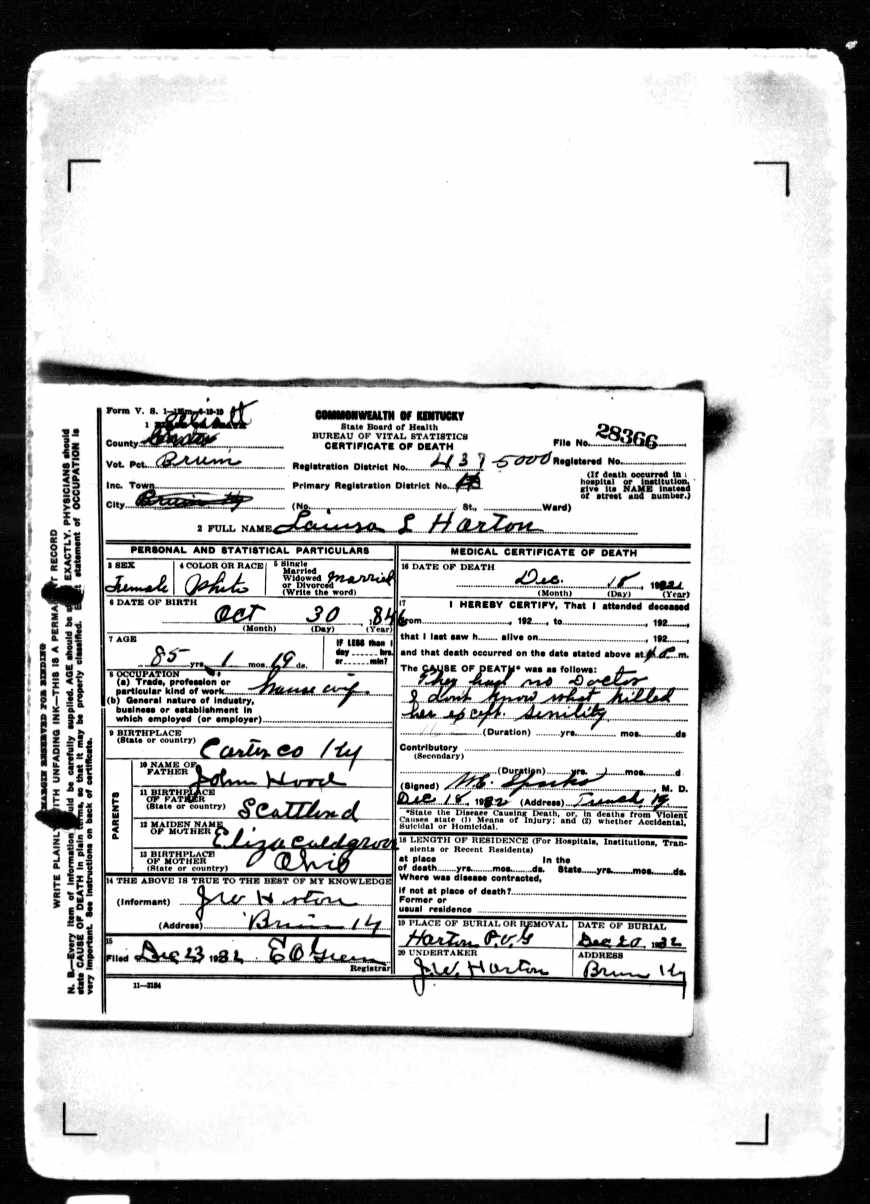 Form V. S. 1
COMMONWEALTH OF KENTUCKY
State Board of Health
BUREAU OF VITAL STATISTICS
CERTIFICATE OF DEATH
File No. 28366
1
County
Vot. Pct. Bruin
Registration District No. 437-5000 Registered No.
Inc. Town
Primary Registration District No.
(If death occurred in hospital or institution, give its NAME instead of street and number.)
City
(No. St., Ward)
2 FULL NAME L Horton
PERSONAL AND STATISTICAL PARTICULARS
3 SEX
Female
4 COLOR OR RACE
White
5 Single
Married
Widowed
or Divorced
(Write the word)
Married
6 DATE OF BIRTH
Oct 30 1846
(Month) (Day) (Year)
7 AGE
85 yrs. 1 mos. 19 ds.
IF LESS than 1
day hrs.
or min?
8 OCCUPATION
(a) Trade, profession or
particular kind of work house wif
(b) General nature of industry,
business or establishment in
which employed (or employer)
9 BIRTHPLACE
(State or country) Carter co Ky
PARENTS
10 NAME OF
FATHER John Hood
11 BIRTHPLACE
OF FATHER
(State or country) Scottlend
12 MAIDEN NAME
OF MOTHER Eliza
13 BIRTHPLACE
OF MOTHER
(State or country) Ohio
14 THE ABOVE IS TRUE TO THE BEST OF MY KNOWLEDGE
(Informant) J W Horton
(Address) Bruin Ky
15
Filed Dec 23 1932 E O Green
Registrar
11-3184
MEDICAL CERTIFICATE OF DEATH
16 DATE OF DEATH
Dec. 18, 1932
(Month) (Day) (Year)
17 I HEREBY CERTIFY, That I attended deceased
from, 192, to, 192,
that I last saw h alive on, 192,
and that death occurred on the date stated above at 4 P. m.
The CAUSE OF DEATH* was as follows:
They had no Doctor
I dont know what killed
her except. Senility
(Duration) yrs. mos. ds
Contributory
(Secondary)
(Duration) yrs. mos. d
(Signed) Sparks, M. D.
Dec 18, 1932 (Address)
*State the Disease Causing Death, or, in deaths from Violent
Causes state (1) Means of Injury; and (2) whether Accidental,
Suicidal or Homicidal.
18 LENGTH OF RESIDENCE (For Hospitals, Institutions, Tran-
sients or Recent Residents)
at place In the
of death yrs. mos. ds. State yrs. mos. ds.
Where was disease contracted,
if not at place of death?
Former or
usual residence
19 PLACE OF BURIAL OR REMOVAL
Horton
DATE OF BURIAL
Dec 20, 1932
20 UNDERTAKER
J.W. Horton
ADDRESS
Bruin Ky
MARGIN RESERVED FOR BINDING
WRITE PLAINLY WITH UNFADING INK—THIS IS A PERMANENT RECORD
N. B.—Every item of information should be carefully supplied. AGE should be EXACTLY. PHYSICIANS should
state CAUSE OF DEATH in plain terms, so that it may be properly classified. statement of OCCUPATION is
very important. See instructions on back of certificate.